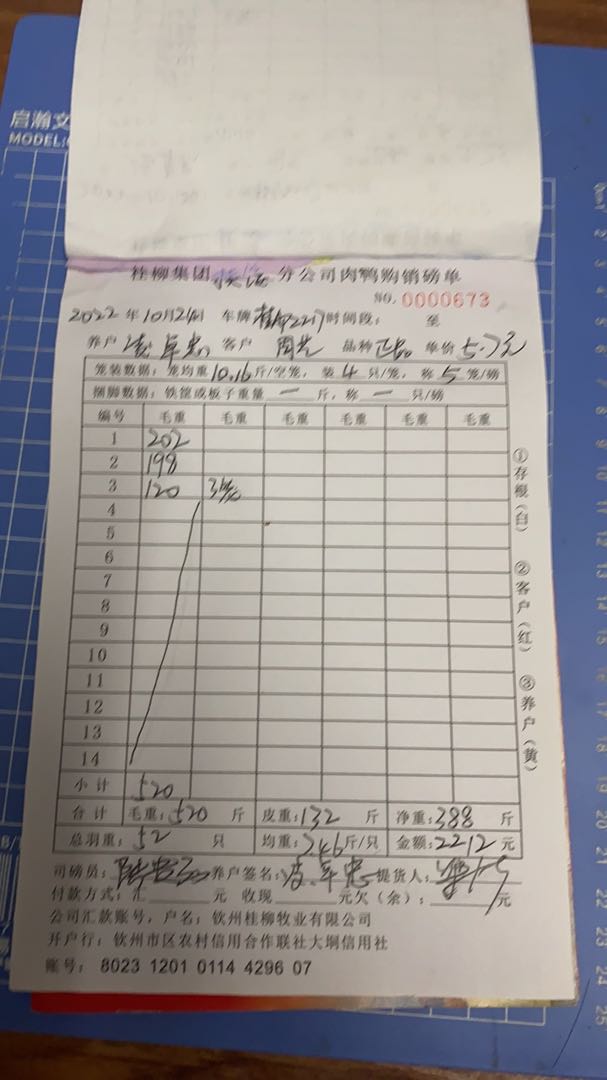 启瀚文
MODEL:
桂柳集团 分公司肉鸭购销磅单
NO. 0000673
2022 年 10月24日 车牌 时间段: 至
养户 客户 品种 单价 5.7元
笼装数据: 笼均重 10.16 斤/空笼, 装 4 只/笼, 称 5 笼/磅
捆脚数据: 铁筐或板子重量 一 斤, 称 一 只/磅
编号 毛重 毛重 毛重 毛重 毛重 毛重
1 202
2 198
3 120 3笼
4
5
6
7
8
9
10
11
12
13
14
小计 520
合计 毛重: 520 斤 皮重: 132 斤 净重: 388 斤
总羽重: 52 只 均重: 7.46 斤/只 金额: 2212 元
司磅员: 养户签名: 提货人:
付款方式: 汇 元 收现 元欠(余): 元
公司汇款账号, 户名: 钦州桂柳牧业有限公司
开户行: 钦州市区农村信用合作联社大垌信用社
账号: 8023 1201 0114 4296 07
①存根(白) ②客户(红) ③养户(黄)